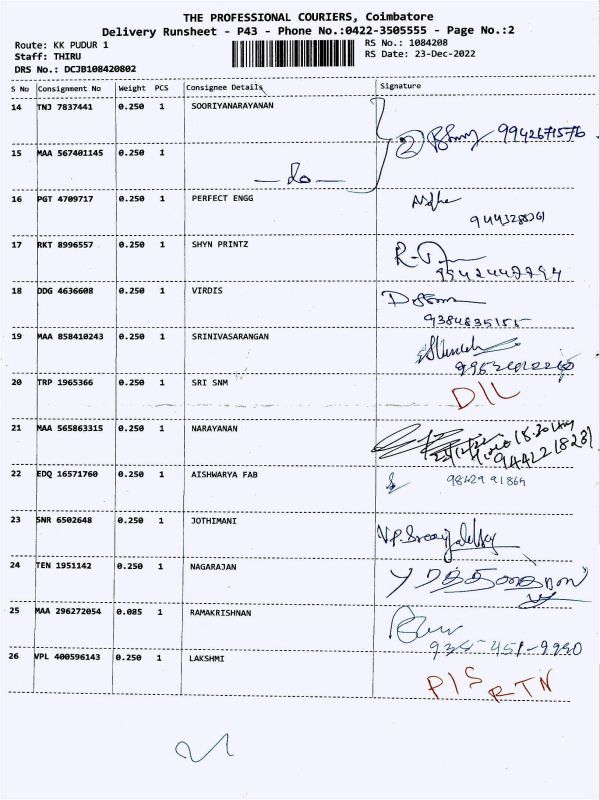 THE PROFESSIONAL COURIERS, Coimbatore
Delivery Runsheet - P43 - Phone No.:0422-3505555 - Page No.:2
Route: KK PUDUR 1
Staff: THIRU
DRS No.: DCJB108420802
RS No.: 1084208
RS Date: 23-Dec-2022
S No Consignment No Weight PCS Consignee Details Signature
14 TNJ 7837441 0.250 1 SOORIYANARAYANAN
2 9942671576
15 MAA 567401145 0.250 1
— do —
16 PGT 4709717 0.250 1 PERFECT ENGG
17 RKT 8996557 0.250 1 SHYN PRINTZ
18 DDG 4636608 0.250 1 VIRDIS
9384835155
19 MAA 858410243 0.250 1 SRINIVASARANGAN
20 TRP 1965366 0.250 1 SRI SNM
D/L
21 MAA 565863315 0.250 1 NARAYANAN
22 EDQ 16571760 0.250 1 AISHWARYA FAB
98429 91864
23 SNR 6502648 0.250 1 JOTHIMANI
24 TEN 1951142 0.250 1 NAGARAJAN
25 MAA 296272054 0.085 1 RAMAKRISHNAN
26 VPL 400596143 0.250 1 LAKSHMI
P/S RTN